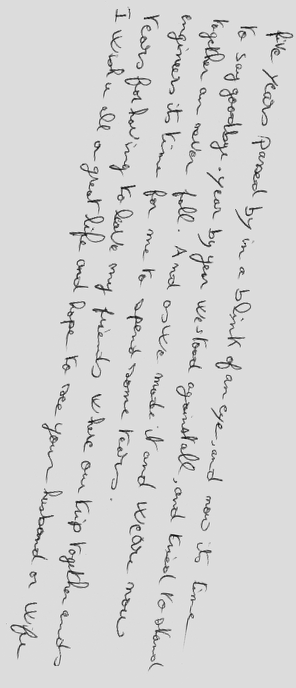 five years passed by in a blink of an eye, and now its time
to say goodbye. Year by year we stood against all, and tried to stand
together an never fall. And as we made it and we are now
engineers its time for me to spend some tears.
Tears for having to leave my friends where our trip together ends
I wish u all a great life and hope to see your husband or wife